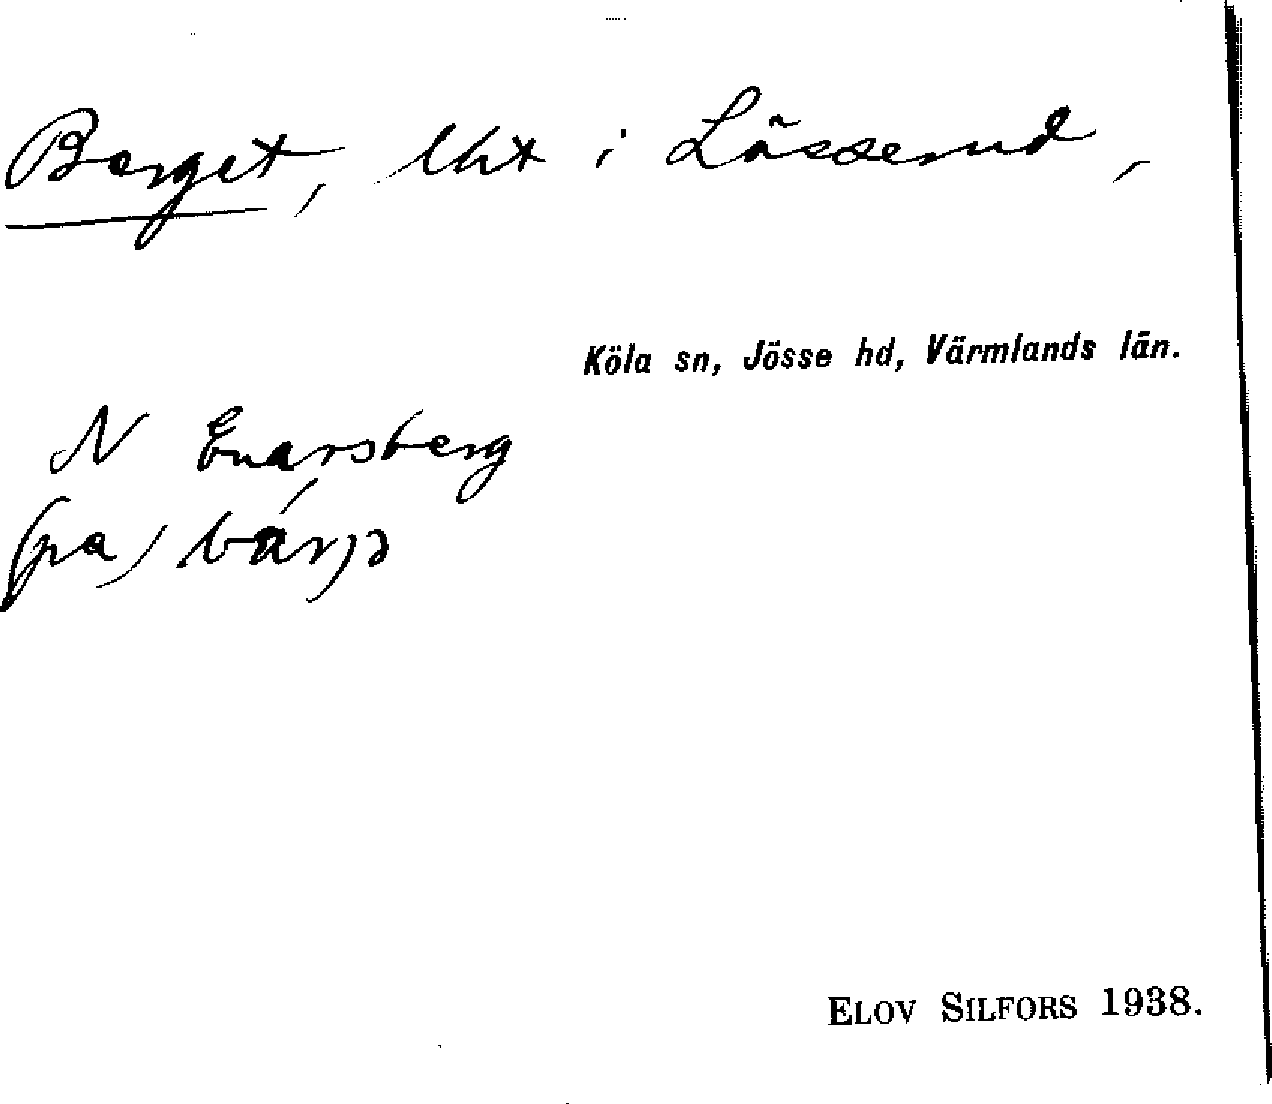 Berget, lht i Lässerud,
Köla sn, Jösse hd, Värmlands län.
N Enarsberg
(pa) bárjə
ELOV SILFORS 1938.